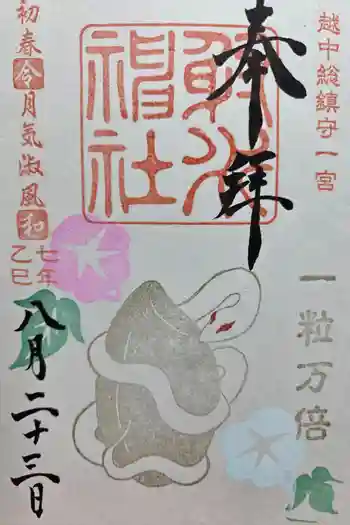 越中総鎮守一宮
奉拝
射水
神社
一粒万倍
初春令月気淑風和
七年
乙巳
八月二十三日